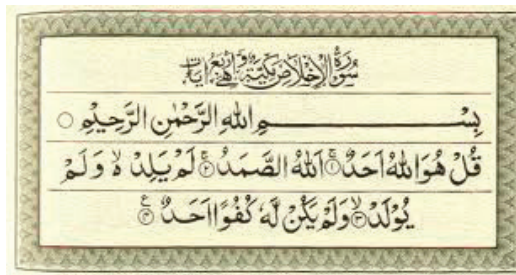 سُورَةُ الْاِخْلَاصِ مَكِّيَّةٌ وَّهِيَ اَرْبَعُ اٰيَاتٍ
بِسْمِ اللّٰهِ الرَّحْمٰنِ الرَّحِيْمِ ○
قُلْ هُوَ اللّٰهُ اَحَدٌ ۚ‏﴿۱﴾ اَللّٰهُ الصَّمَدُ ۚ‏﴿۲﴾ لَمْ يَلِدْ ۙ وَلَمْ
يُوْلَدْ ۙ‏﴿۳﴾ وَلَمْ يَكُنْ لَّهٗ كُفُوًا اَحَدٌ ﴿۴﴾ ع